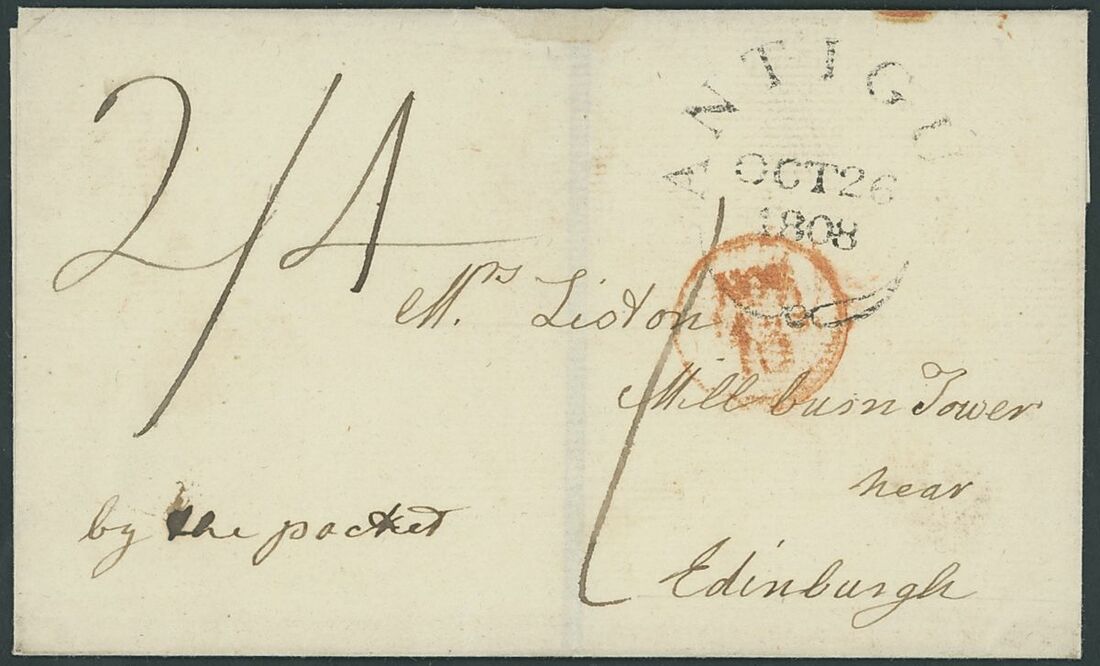 ANTIGU
OCT 26
1808
2/4
Mrs Liston
Millburn Tower
near
Edinburgh
by the packet